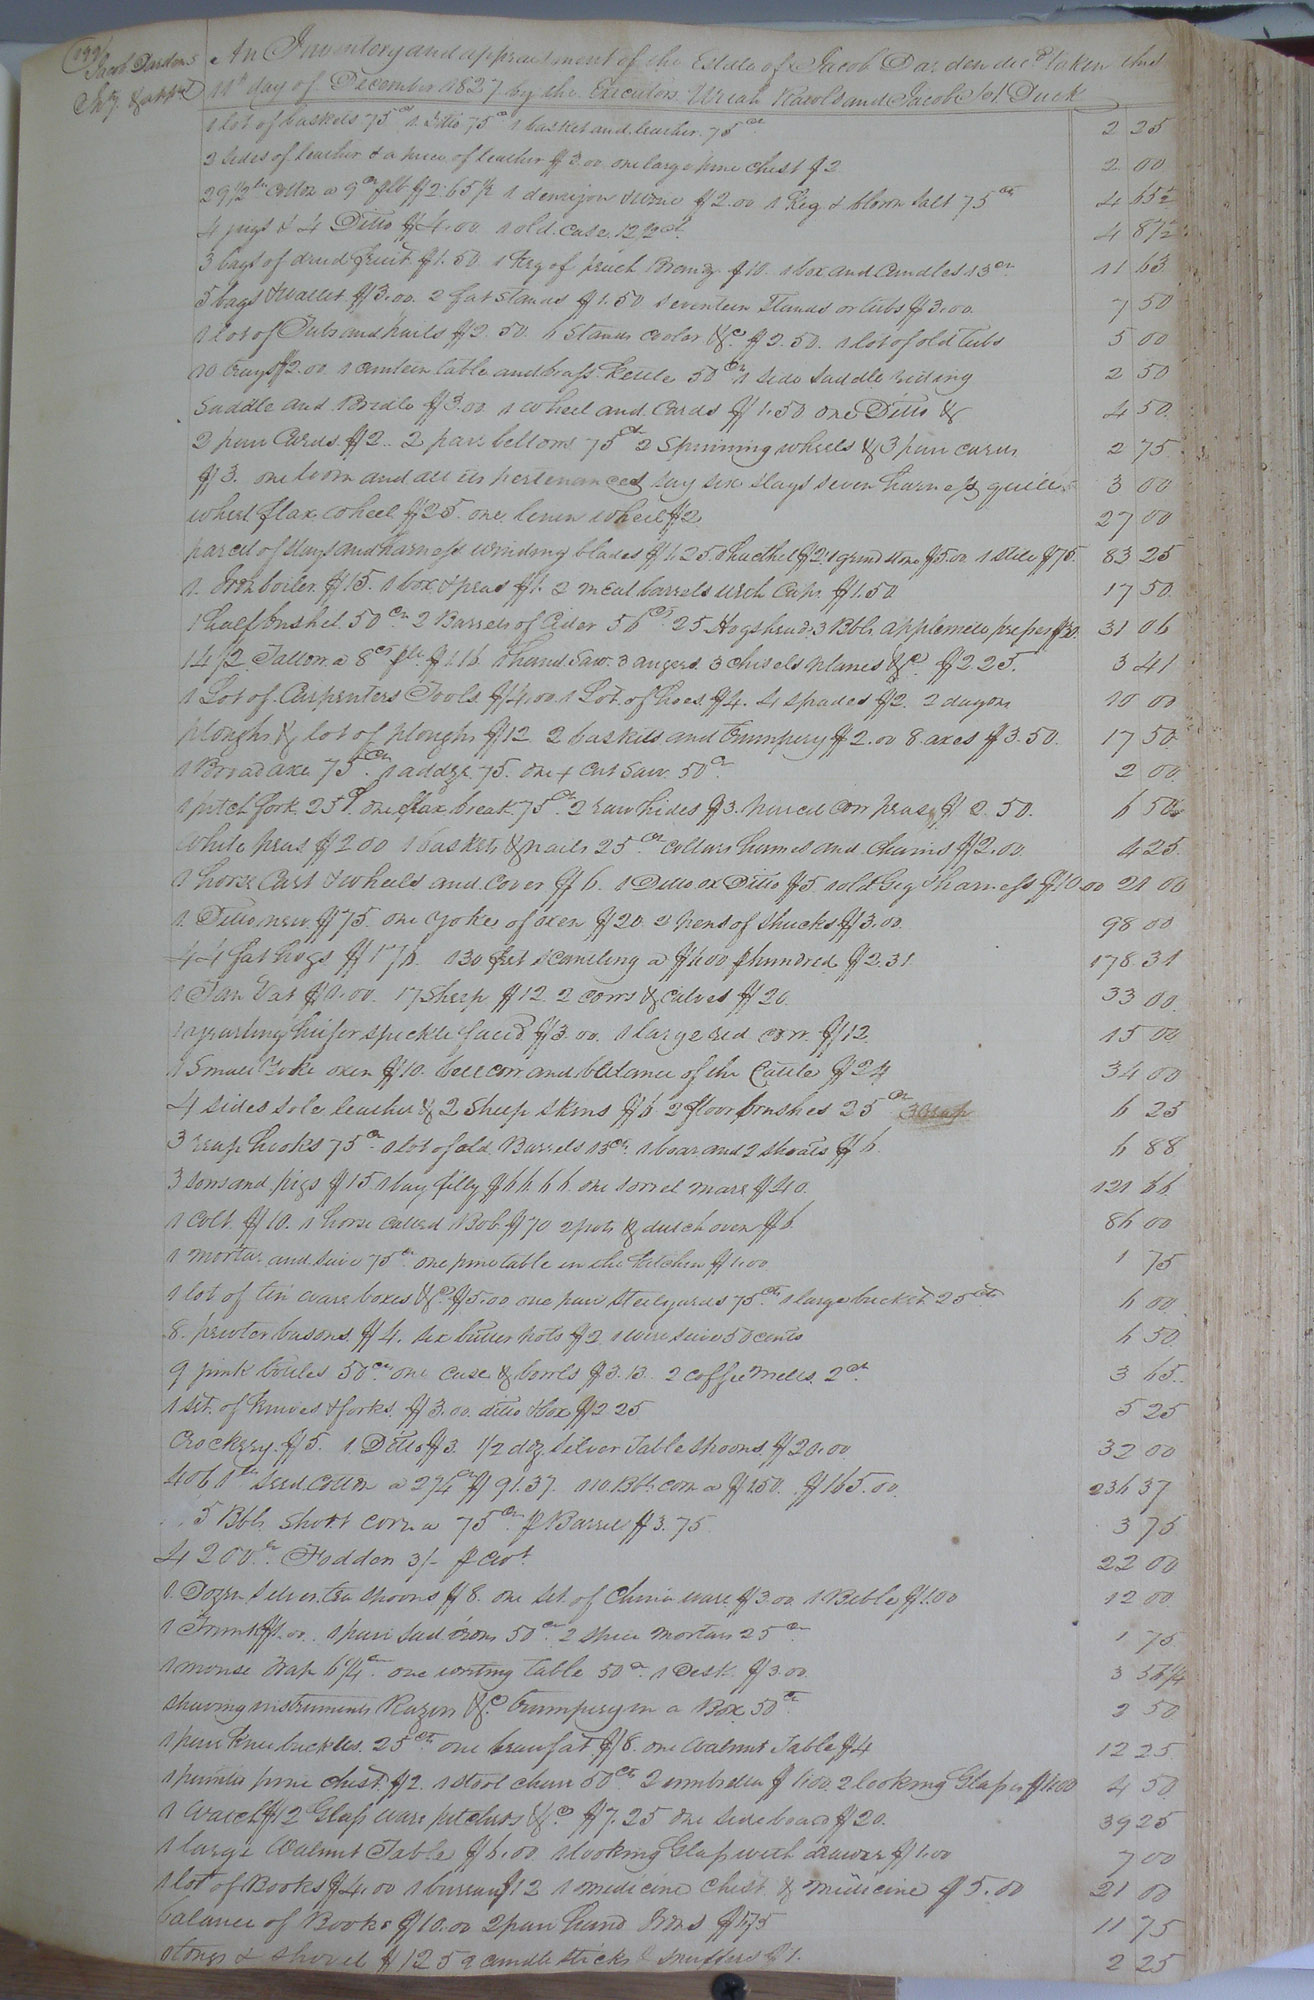 Jacob Darden's
Inv. & apprt
An Inventory and appraisment of the Estate of Jacob Darden decd taken this
11th day of December 1827 by the Executors Uriah Rawls and Jacob Duck
1 lot of baskets 75 cts 1 Ditto 75 cts 1 basket and leather 75 cts 2 25
2 sides of leather & a piece of leather $3.00 one large pine chest $2 2 00
29 1/2 lbs Cotton a 9 cts plb $2.65 1/2 1 demijon & wine $2.00 1 Keg & blown salt 75 cts 4 65 1/2
4 jugs & 4 Ditto $4.00 1 old case 12 1/2 cts 4 87 1/2
3 bags of dried fruit $1.50 1 Keg of peach Brandy $10. 1 box and Candles 13 cts 11 63
5 bags & wallet $3.00. 2 fat stands $1.50 seventeen Stands or tubs $3.00. 7 50
1 lot of Tubs and Pails $2.50. 1 Stand cooler &c. $2.50. 1 lot of old tubs 5 00
10 trays $2.00. 1 canteen table and brass Kettle 50 cts 1 side saddle riding 2 50
Saddle and Bridle $3.00 1 wheel and Cards $1.50 one Ditto & 4 50
2 pair Cards $2. 2 pair bellows 75 cts 2 Spinning wheels & 3 pair cards 2 75
$3. one loom and all its pertenances say six slays seven harness quill 3 00
wheel flax wheel $25. one linen wheel $2 27 00
parcel of slays and harness winding blades $1.25. 1 hacthel $2. 1 grind stone $5.00 1 still $75. 83 25
1. Iron boiler $15. 1 box & peas $1. 2 meal barrels with Caps $1.50. 17 50
1 half bushel 50 cts 2 Barrels of Cider 56 cts 25 Hogsheads 3 Bbls apple $30. 31 06
14 1/2 Tallow a 8 cts plb. $1.16. 1 hand Saw. 3 augers 3 chisels planes &c. $2.25. 3 41
1 Lot of Carpenters Tools. $4.00 1 Lot of hoes $4. 4 spades $2. 2 dagon 10 00
ploughs & lot of ploughs $12 2 baskets and trumpery $2.00 8 axes $3.50. 17 50
1 Broad axe 75 cts. 1 addze 75. one + cut Saw. 50 cts 2 00
1 pitch fork 25 cts. one flax break 75 cts 2 raw hides $3. parcel corn peas $2.50. 6 50
White peas $2.00 1 baskets & nails 25 cts Collars hames and chains $2.00. 4 25
1 horse Cart & wheels and cover $6. 1 Ditto ox Ditto $5 1 old Gig & harness $10.00 21 00
1. Ditto new $75. one yoke of oxen $20. 2 pens of shucks $3.00. 98 00
44 fat hogs $176. 130 feet scantling a p hundred $2.31 178 31
1 Tan Vat $1.00. 17 Sheep $12. 2 cows & calves $20. 33 00
1 yearling heifer speckle faced $3.00. 1 large red cow. $12. 15 00
1 Small Yoke oxen $10. bull cow and ballance of the Cattle $24 34 00
4 sides sole leather & 2 Sheep skins $6 2 floor brushes 25 cts 6 25
3 reap hooks 75 cts 1 lot of old Barrels 13 cts. 1 boar and 2 shoats $6. 6 88
3 sows and pigs $15 1 bay filly $66.66. one sorrel mare $40. 121 66
1 colt. $10. 1 horse called Bob. $70 2 pots & dutch oven $6. 86 00
1 mortar and sieve 75 cts one pine table in the Kitchen $1.00 1 75
1 lot of tin ware boxes &c. $5.00 one pair steelyards 75 cts. 1 large bucket 25 cts 6 00
8. pewter basons $4. six butter pots $2 1 wire sieve 50 cents 6 50
9 pink bottles 50 cts. one case & bowls $3.13. 2 coffee mills. 2 cts. 3 65.
1 set. of knives & forks. $3.00. ditto & box $2.25 5 25
Crockery $5. 1 Ditto $3. 1/2 doz. silver Table spoons $20.00 32 00
4061 lbs seed cotton a 2 1/4 cts $91.37. 110 Bbls corn a $1.50. $165.00. 236 37
5 Bbls Short corn a 75 cts p Barrel $3.75 3 75
4200 lbs Fodder 3/- p cwt. 22 00
1 Dozen silver tea spoons $8. one set. of China ware $3.00 1 Bible $1.00 12 00
1 Trunk $1.00. 1 pair sad irons 50 cts 2 spice mortars 25 cts 1 75
1 mouse trap 6 1/4 cts. one writing table 50 cts 1 Desk. $3.00. 3 56 1/4
shaving instruments Razors &c trumpery in a Box 50 cts 2 50
1 pair knee buckles. 25 cts. one beaufat $8. one Walnut Table $4 12 25
1 painted pine chest. $2. 1 stool chair 50 cts 2 umbrella $1.00. 2 looking Glasses $1.00 4 50
1 Watch $12 Glass ware pitchers &c $7.25 one side board $20. 39 25
1 large Walnut Table $6.00 1 looking Glass with drawer $1.00 7 00
1 lot of Books $4.00 1 bureau $12 1 medicine chest & medicine $5.00 21 00
balance of Books $10.00 2 pair hand Irons $1.75 11 75
tongs & shovel $1.25 2 candle sticks & snuffers $1. 2 25